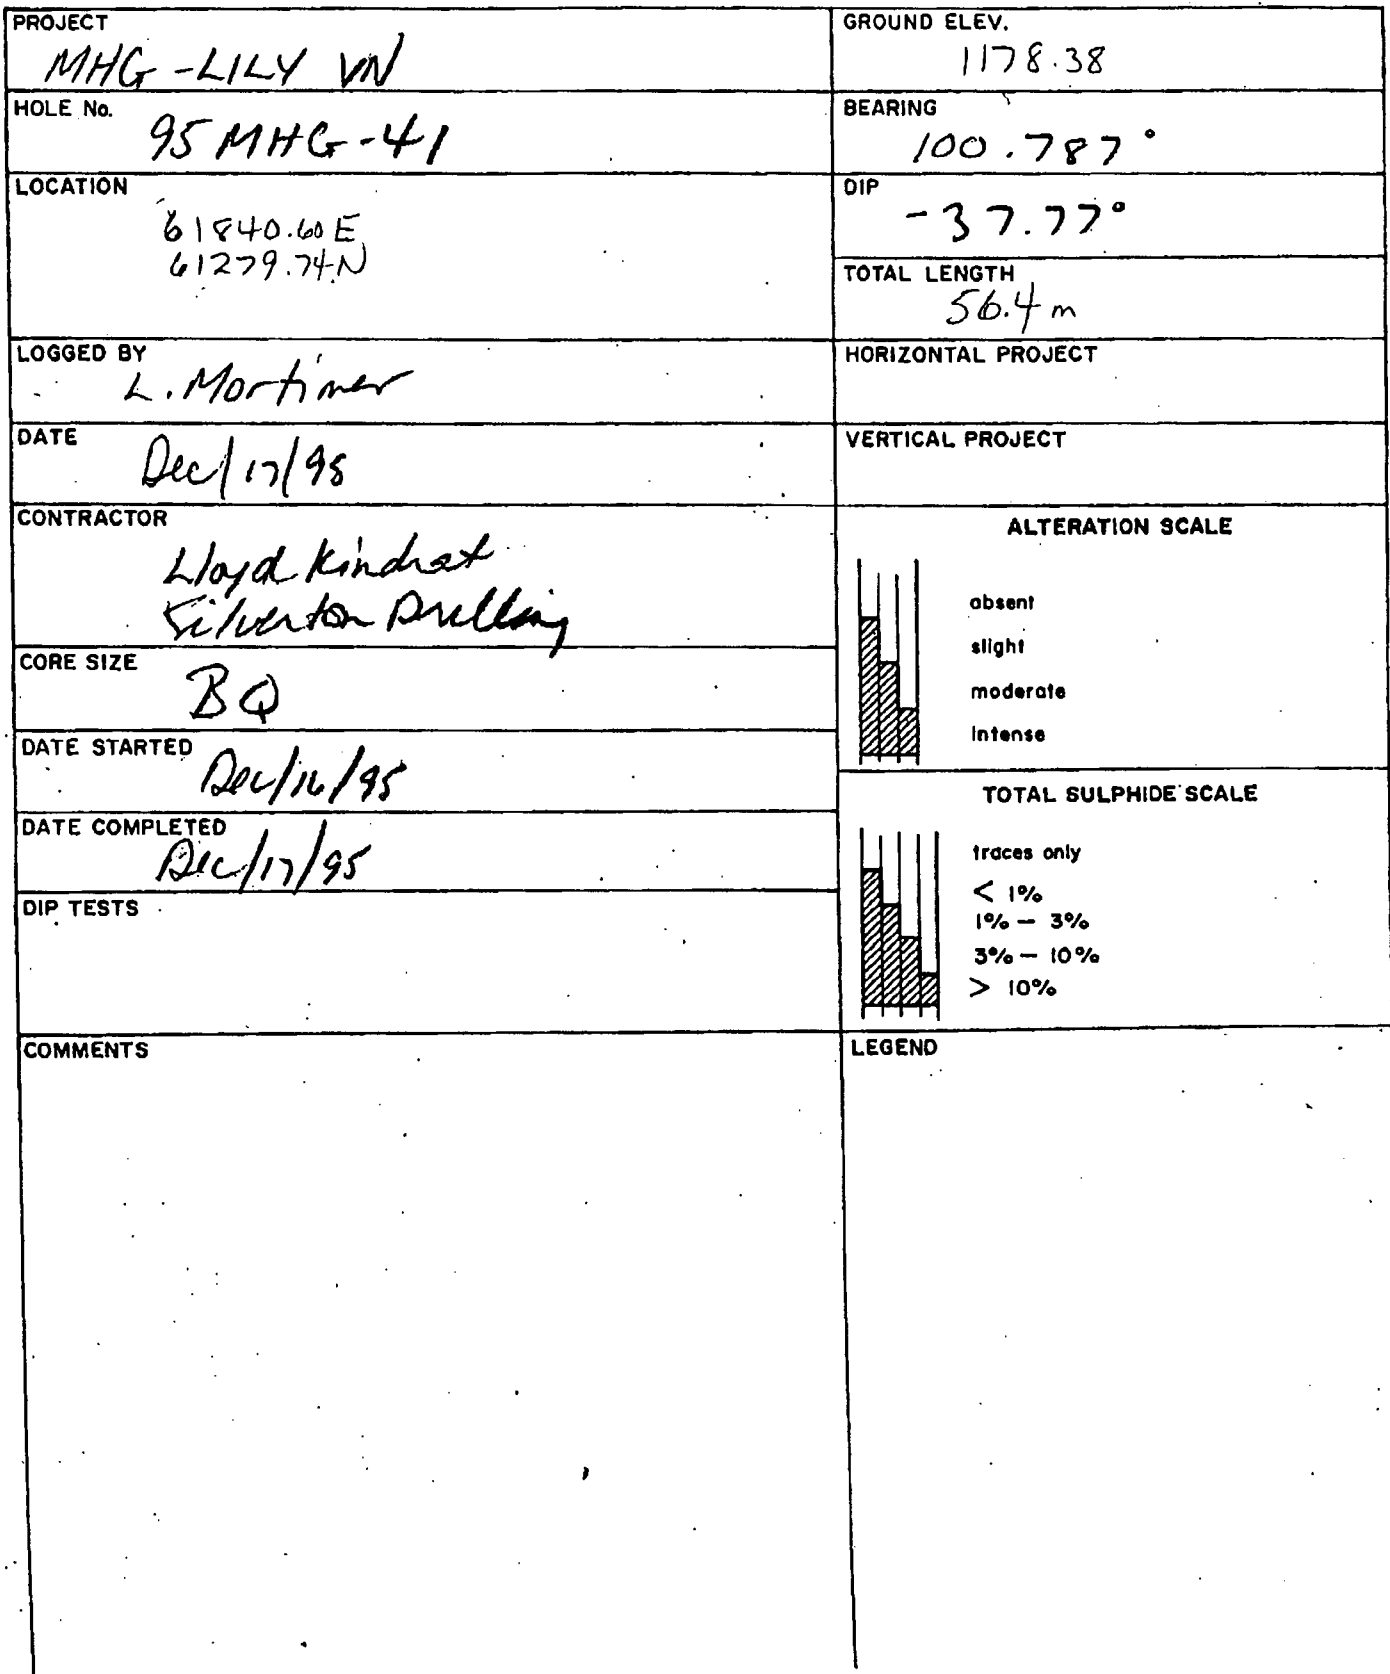 PROJECT
MHG-LILY VN
HOLE No.
95 MHG-41
LOCATION
61840.60 E
61279.74 N
LOGGED BY
L. Mortimer
DATE
Dec/17/95
CONTRACTOR
Lloyd Kindrat
Silverton Drilling
CORE SIZE
BQ
DATE STARTED
Dec/16/95
DATE COMPLETED
Dec/17/95
DIP TESTS
COMMENTS
GROUND ELEV.
1178.38
BEARING
100.787°
DIP
-37.77°
TOTAL LENGTH
56.4 m
HORIZONTAL PROJECT
VERTICAL PROJECT
ALTERATION SCALE
absent
slight
moderate
intense
TOTAL SULPHIDE SCALE
traces only
< 1%
1% — 3%
3% — 10%
> 10%
LEGEND